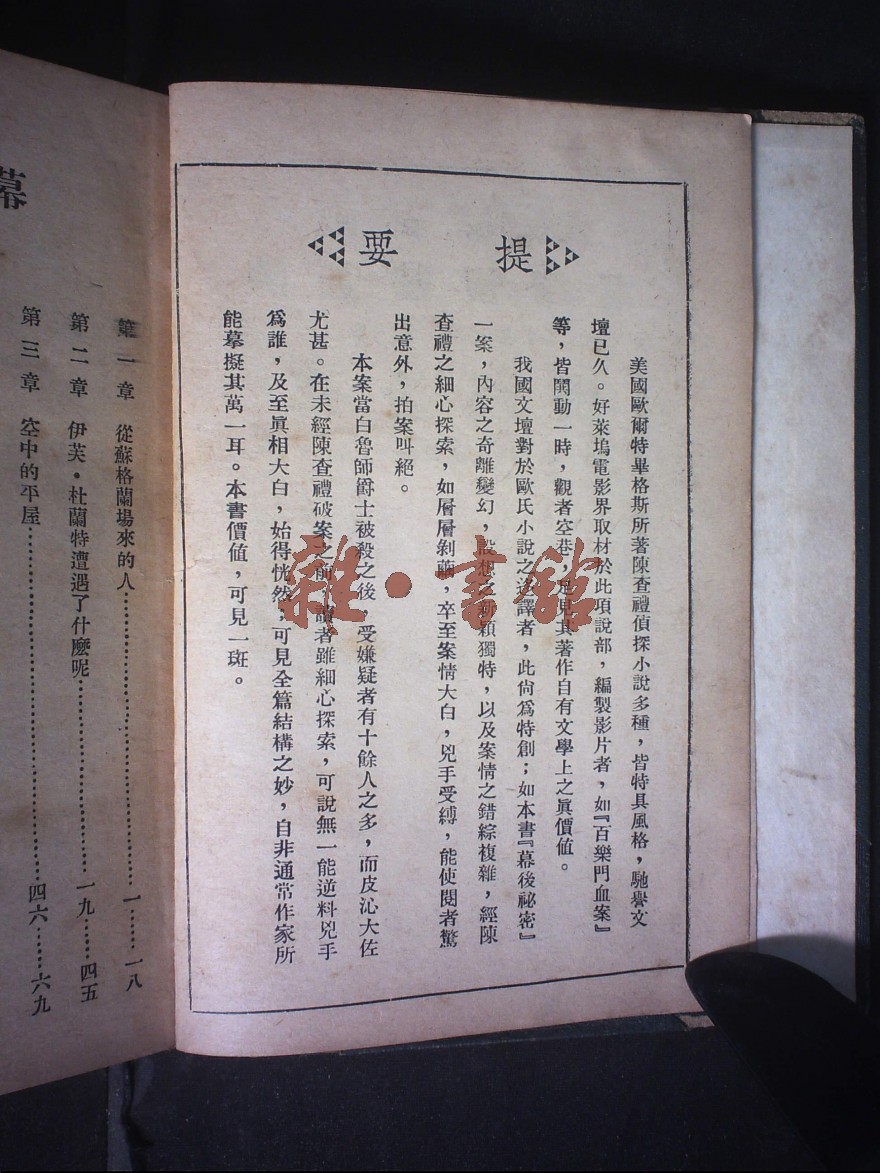 提要
美國歐爾特畢格斯所著陳查禮偵探小說多種，皆特具風格，馳譽文
壇已久。好萊塢電影界取材於此項說部，編製影片者，如『百樂門血案』
等，皆鬨動一時，觀者空巷，足見其著作自有文學上之眞價値。
我國文壇對於歐氏小說之迻譯者，此尙爲特創；如本書『幕後祕密』
一案，內容之奇離變幻，設想之新穎獨特，以及案情之錯綜複雜，經陳
查禮之細心探索，如層層剝繭，卒至案情大白，兇手受縛，能使閱者驚
出意外，拍案叫絕。
本案當白魯師爵士被殺之後，受嫌疑者有十餘人之多，而皮沁大佐
尤甚。在未經陳查禮破案之前，讀者雖細心探索，可說無一能逆料兇手
爲誰，及至眞相大白，始得恍然，可見全篇結構之妙，自非通常作家所
能摹擬其萬一耳。本書價値，可見一斑。
幕
第一章 從蘇格蘭場來的人……………………一……一八
第二章 伊芙・杜蘭特遭遇了什麼呢……………………一九……四五
第三章 空中的平屋……………………四六……六九
雜・書館